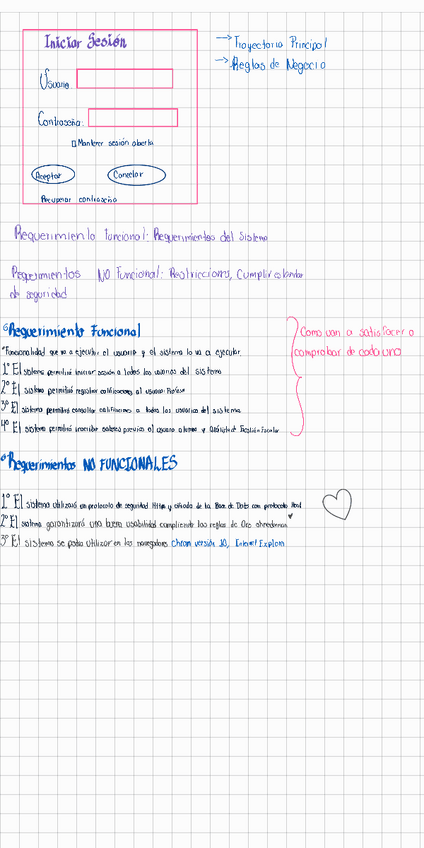 Iniciar Sesión
→ Trayectoria Principal
→ Reglas de Negocio
Usuario
Contraseña:
Mantener sesión abierta
Aceptar
Cancelar
Recuperar contraseña
Requerimiento Funcional: Requerimientos del Sistema
Requerimientos NO Funcional: Restricciones, Cumplir
de seguridad
Requerimiento Funcional
Como van a satisfacer o
comprobar de cada uno
"Funcionalidad que va a ejecutar el usuario y el sistema lo va a ejecutar.
1° El sistema permitirá iniciar sesión a todos los usuarios del sistema
2° El sistema permitirá registrar calificaciones al usuario Profesor
3° El sistema permitirá consultar calificaciones a todos los usuarios del sistema
4° El sistema permitirá inscribir al usuario alumno y Gestión Escolar
Requerimientos NO FUNCIONALES
1° El sistema utilizará un protocolo de seguridad Https y cifrado de la Base de Datos con protocolo
2° El sistema garantizará una buena usabilidad cumpliendo las reglas de Oro
3° El sistema se podrá utilizar en los navegadores Chrom versión 10, Internet Explorer